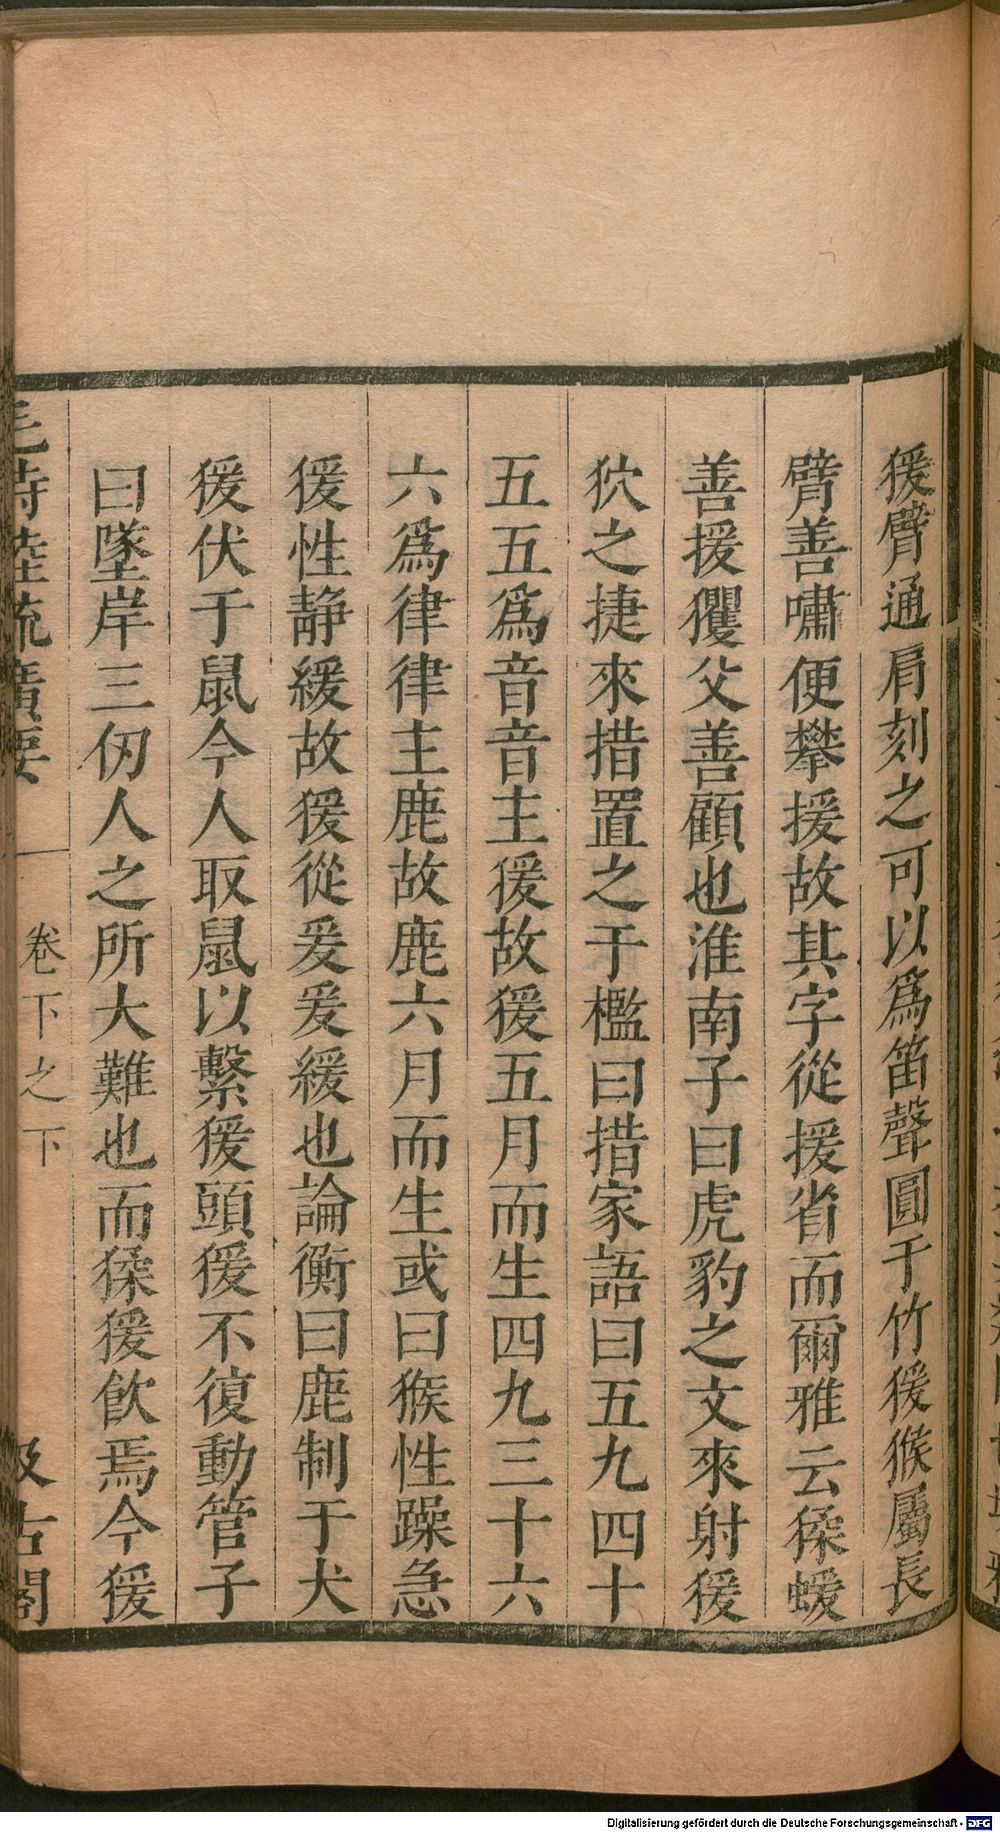 猨臂通肩刻之可以爲笛聲圓于竹猨猴屬長
臂善嘯便攀援故其字從援省而爾雅云猱蝯
善援玃父善顧也淮南子曰虎豹之文來射猨
狖之捷來措置之于檻曰措家語曰五九四十
五五爲音音主猨故猨五月而生四九三十六
六爲律律主鹿故鹿六月而生或曰猴性躁急
猨性静緩故猨從爰爰緩也論衡曰鹿制于犬
猨伏于鼠今人取鼠以繫猨頭猨不復動管子
曰墜岸三仞人之所大難也而猱猨飲焉今猨
毛詩陸疏廣要 卷下之下 汲古閣
Digitalisierung gefördert durch die Deutsche Forschungsgemeinschaft - DFG